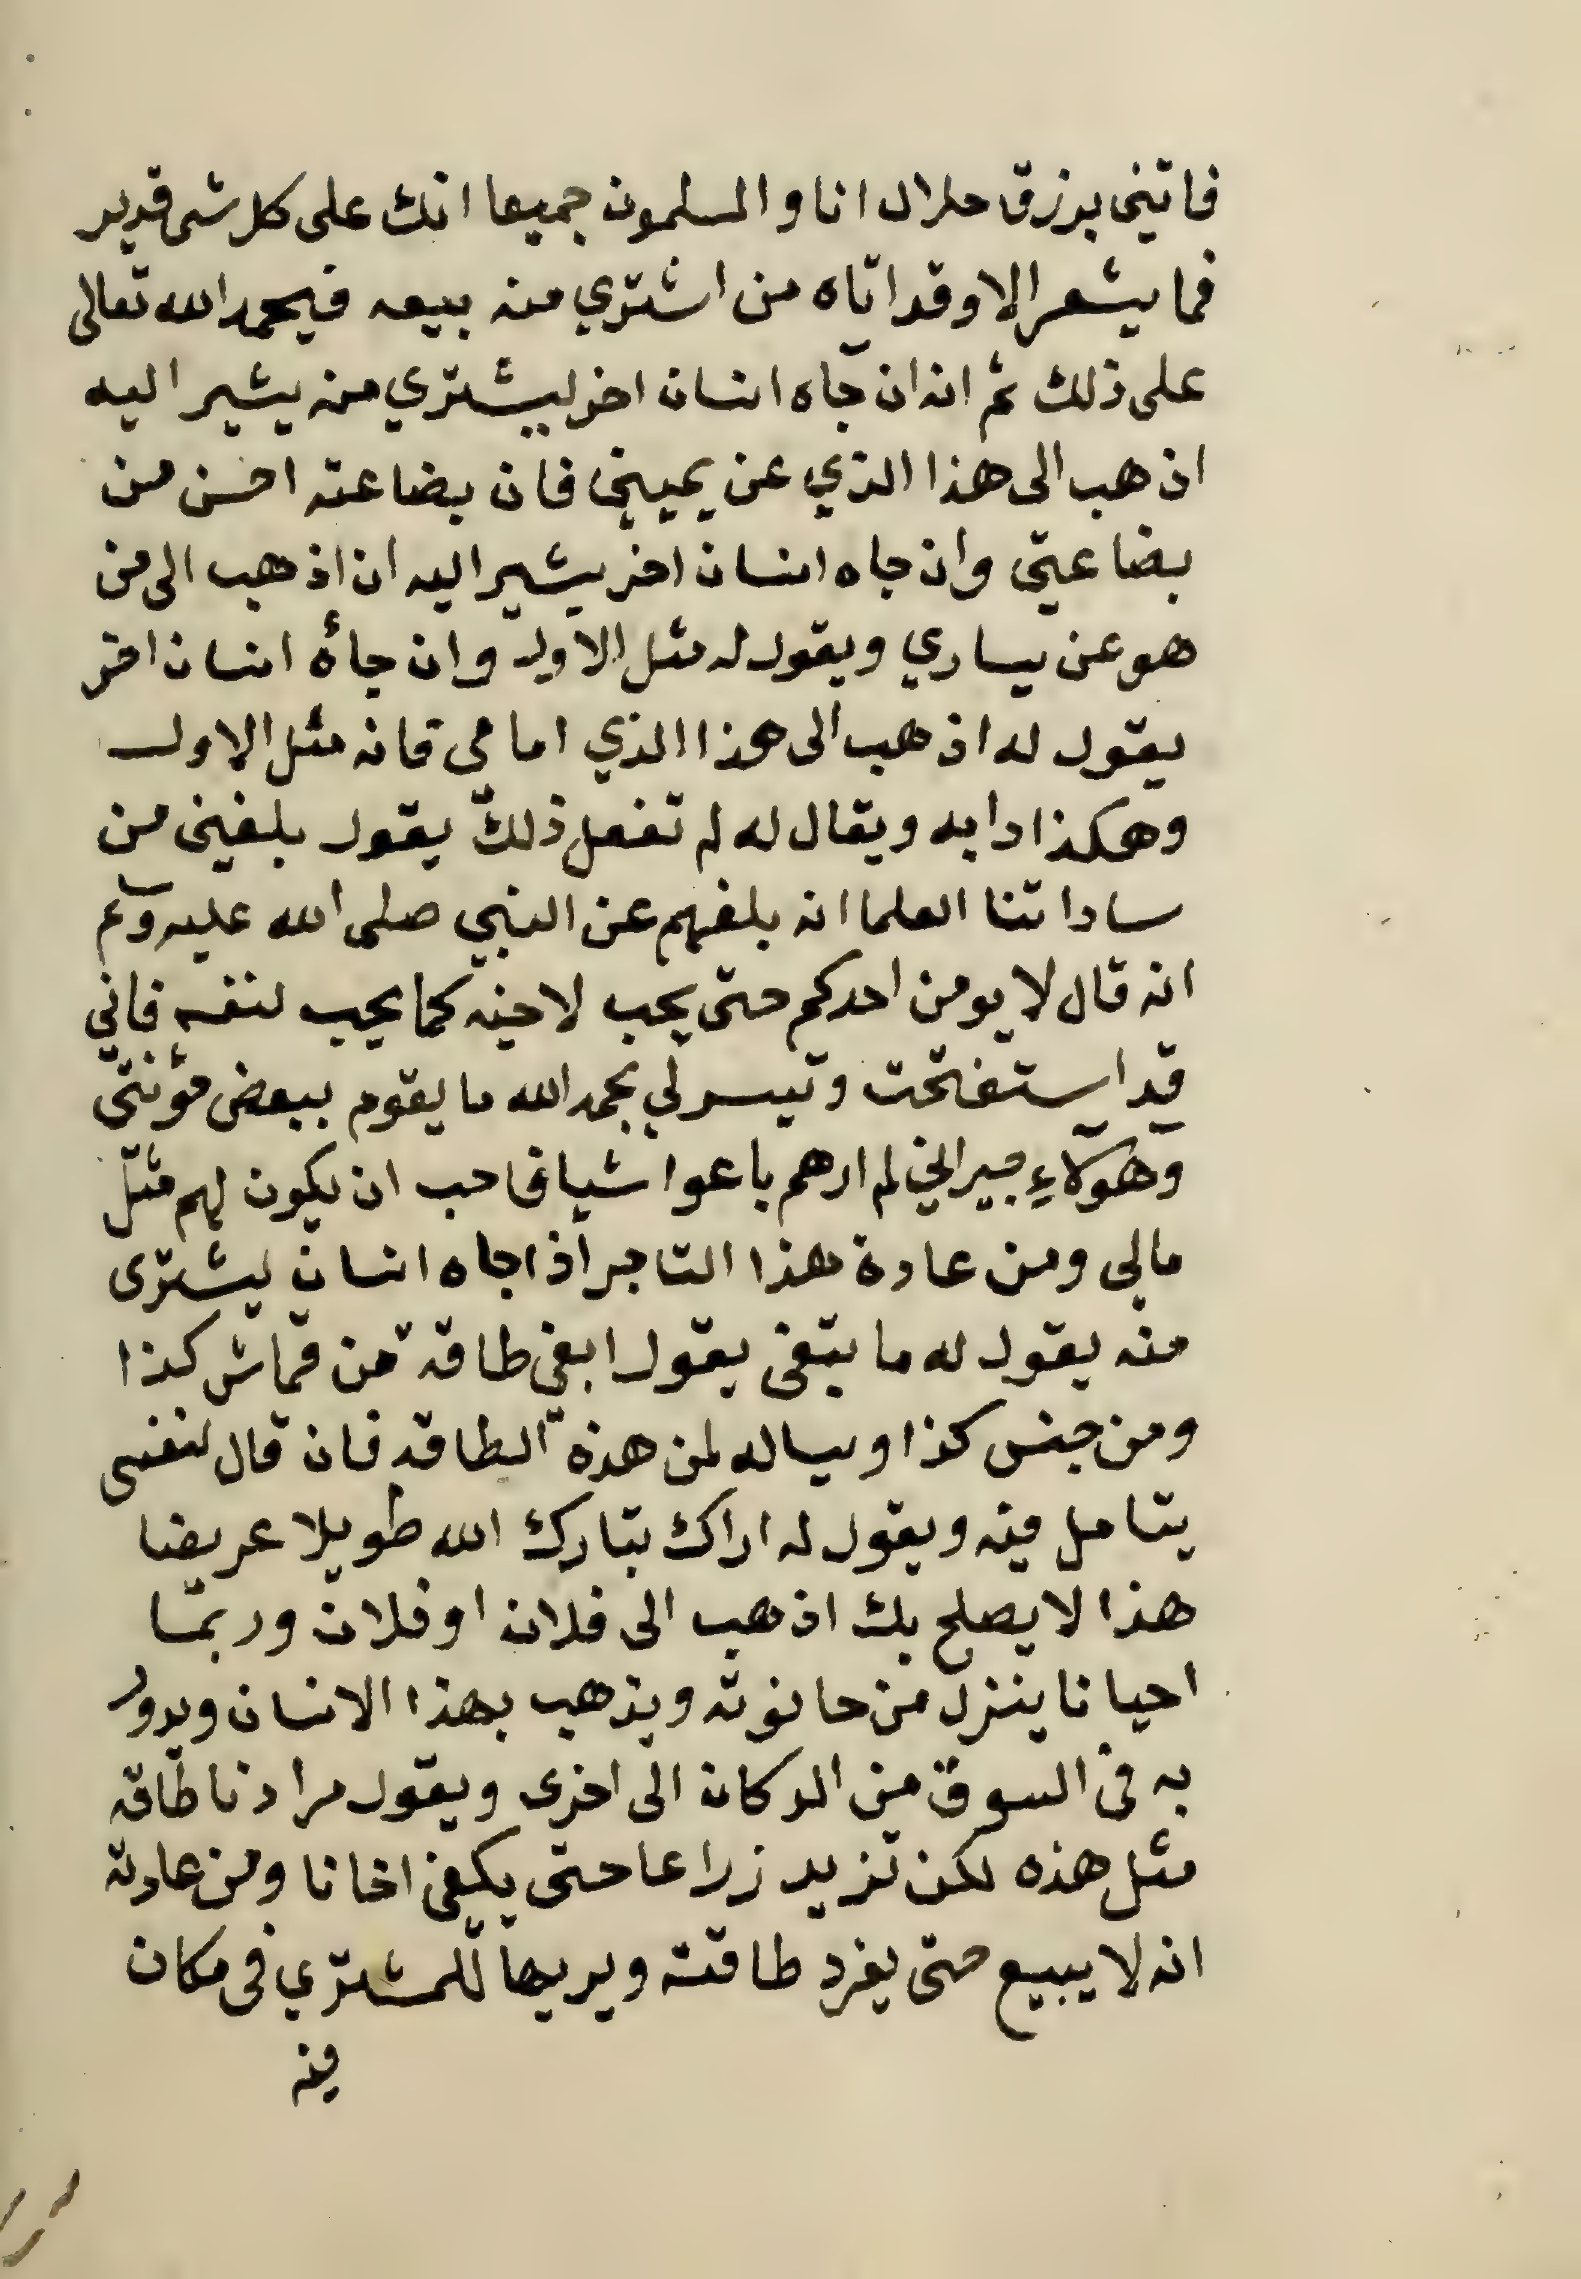 فاتني برزق حلال انا والمسلمون جميعا انك على كل شى قدير
فما يشعر الا وقد اتاه من اشتري منه بيعه فيحمد الله تعالى
على ذلك ثم انه ان جاه انسان اخر ليشتري منه يشير اليه
اذهب الى هذا الذي عن يميني فان بضاعته احسن من
بضاعتي وان جاه انسان اخر يشير اليه ان اذهب الى من
هو عن يساري ويقول له مثل الاول وان جأه انسان اخر
يقول له اذهب الى هذا الذي امامي فانه مثل الاول
وهكذا دابه ويقال له لم تفعل ذلك يقول بلغني من
ساداتنا العلما انه بلغهم عن النبي صلى الله عليه وسلم
انه قال لا يومن احدكم حتى يحب لاخيه كما يحب لنفسه فاني
قد استفتحت وتيسر لي بحمد الله ما يقوم ببعض مؤنتي
وهؤلاء جيراني لم ارهم باعوا شيا فاحب ان يكون لهم مثل
مالي ومن عادة هذا التاجر اذا جاه انسان ليشترى
منه يقول له ما تبغى يقول ابغي طاقة من قماش كذا
ومن جنس كذا ويساله لمن هذه الطاقه فان قال لنفسى
يتامل فيه ويقول له اراك تبارك الله طويلا عريضا
هذا لا يصلح بك اذهب الى فلان او فلان وربما
احيانا ينزل من حانوته ويذهب بهذا الانسان ويدور
به في السوق من الدكان الى اخرى ويقول مرادنا طاقه
مثل هذه لكن تزيد زراعا حتى يكفي اخانا ومن عادته
انه لا يبيع حتى يفرد طاقته ويريها للمشتري في مكان
فيه